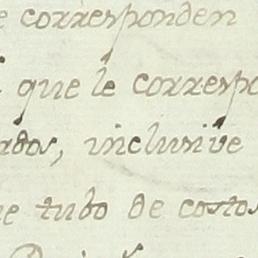 e corresponden
que le correspo
ados, inclusive
e tubo de costos